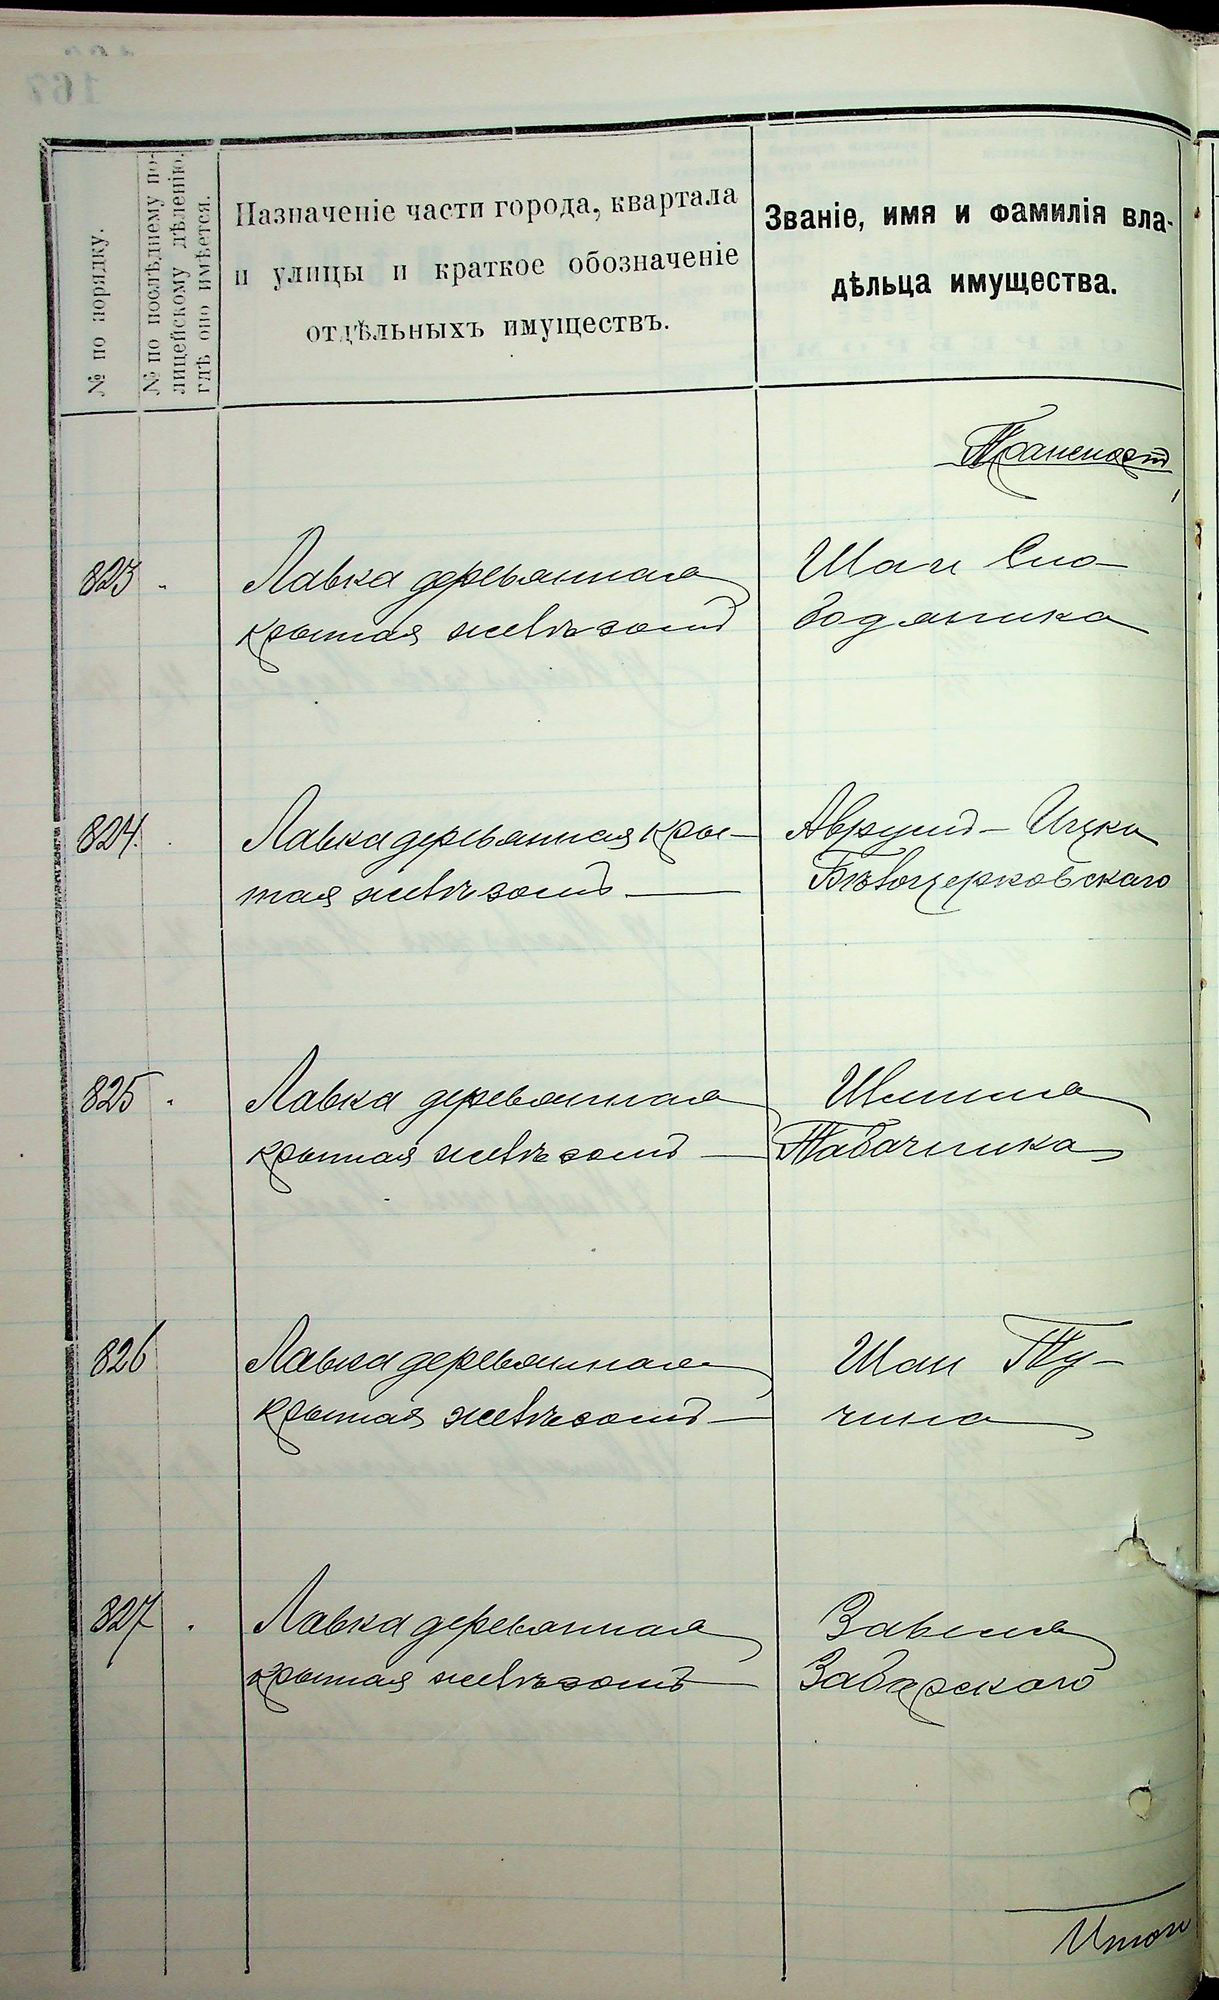 167
№ по порядку.
№ по послѣднему по-
лицейскому дѣленію,
гдѣ оно имѣется.
Назначеніе части города, квартала
и улицы и краткое обозначеніе
отдѣльныхъ имуществъ.
Званіе, имя и фамилія вла-
дѣльца имущества.
Транспорт
823 Лавка деревянная Шаи Сло-
крытая желѣзомъ бодяника
824. Лавка деревянная кры- Аврумъ-Ицка
тая желѣзомъ Бѣлоцерковскаго
825 Лавка деревянная Шлиома
крытая желѣзомъ Табачника
826 Лавка деревянная Шаи Ту-
крытая желѣзомъ чина
827 Лавка деревянная Завеля
крытая желѣзомъ Забарского
Итого